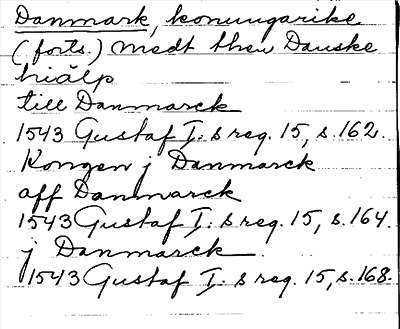 Danmark, konungarike
(forts.) Medt then Danske
hiälp
till Danmarck
1543 Gustaf I:s reg. 15, s. 162.
Kongen j Danmarck
aff Danmarck
1543 Gustaf I:s reg. 15, s. 164.
j Danmarck
1543 Gustaf I:s reg. 15, s. 168.